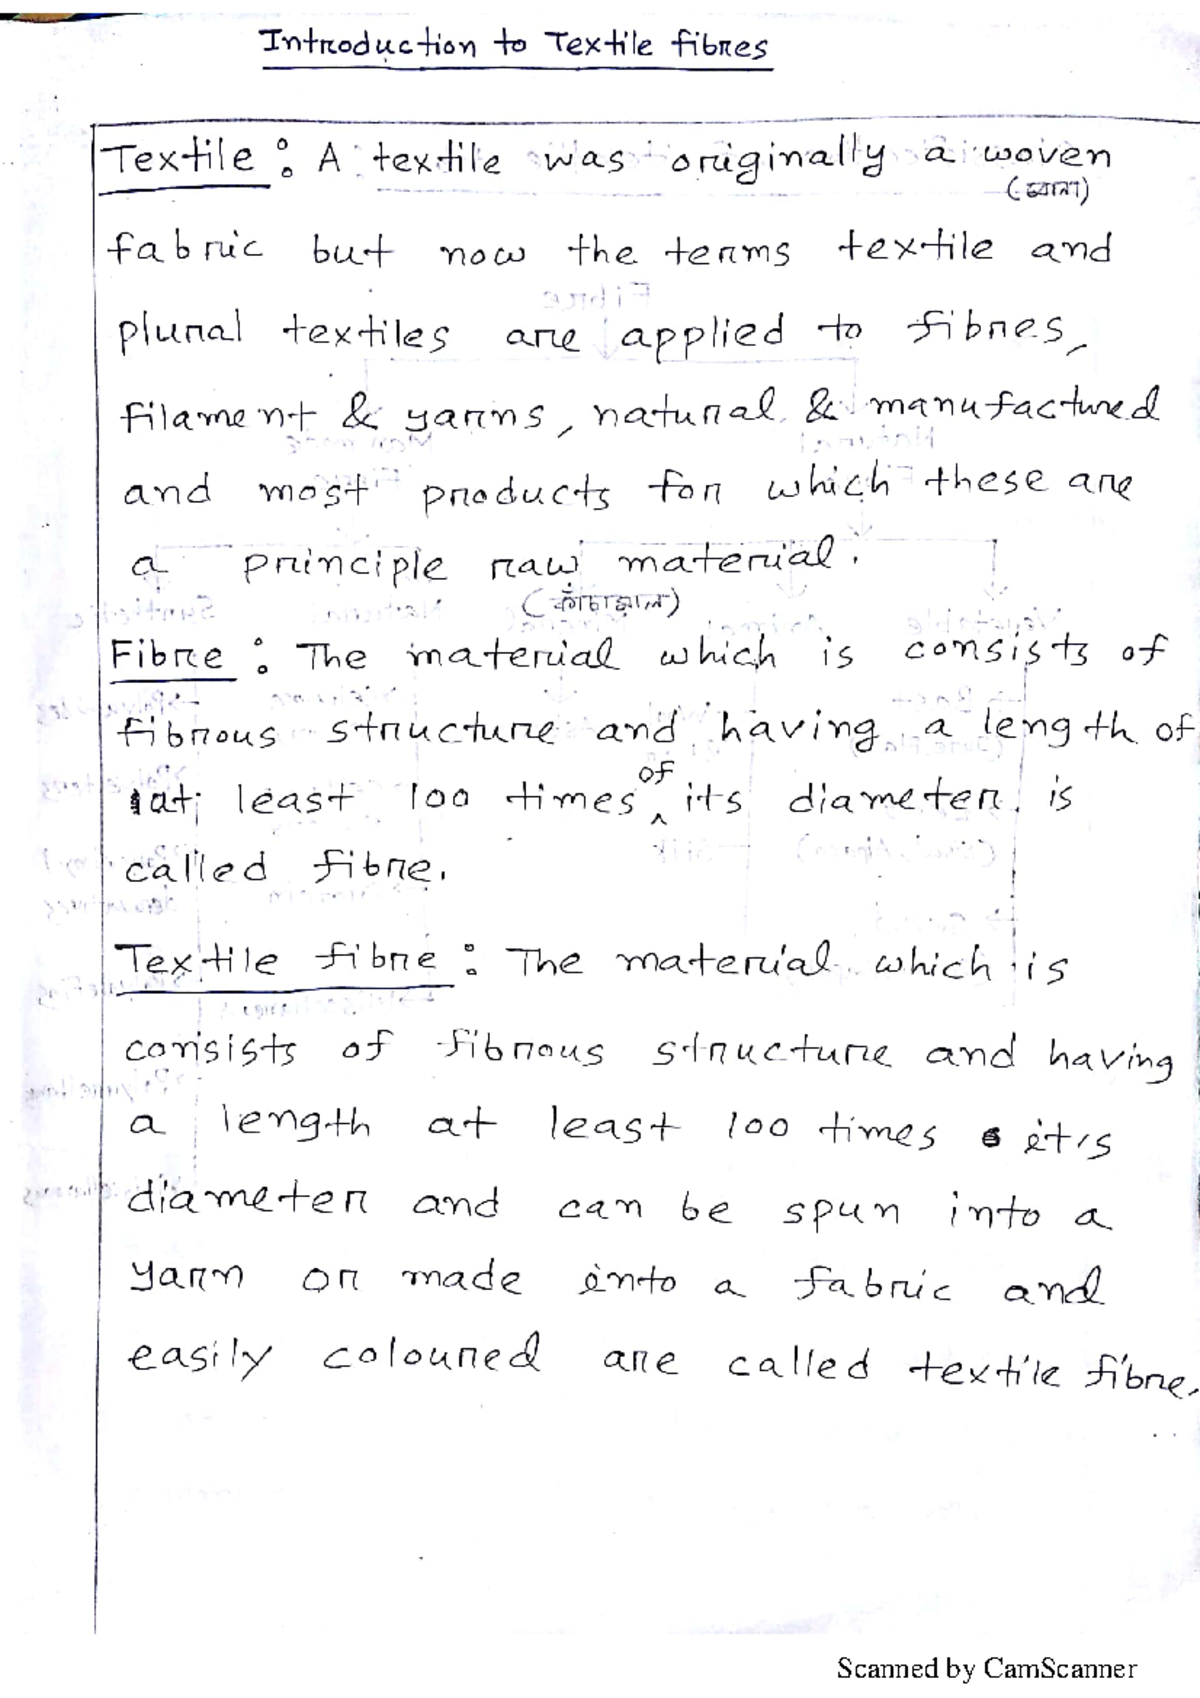 Introduction to Textile fibres
Textile : A textile was originally a woven
(বোনা)
fabric but now the terms textile and
plural textiles are applied to fibres,
filament & yarns, natural & manufactured
and most products for which these are
a principle raw material.
(কাঁচামাল)
Fibre : The material which is consists of
fibrous structure and having a length of
at least 100 times of its diameter is
called fibre.
Textile fibre : The material which is
consists of fibrous structure and having
a length at least 100 times it's
diameter and can be spun into a
yarn or made into a fabric and
easily coloured are called textile fibre.
Scanned by CamScanner